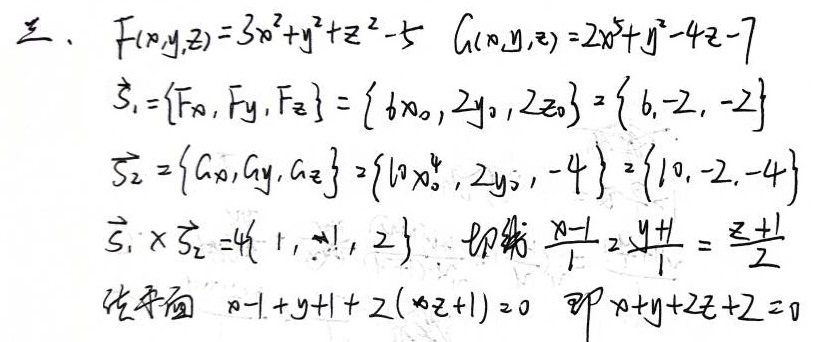 三、 F(x,y,z)=3x²+y²+z²-5 G(x,y,z)=2x⁵+y²-4z-7
S⃗₁={Fx,Fy,Fz}={6x₀,2y₀,2z₀}={6,-2,-2}
S⃗₂={Gx,Gy,Gz}={10x₀⁴,2y₀,-4}={10,-2,-4}
S⃗₁×S⃗₂=4{1,1,2} 切线 (x-1)/1=(y+1)/1=(z+1)/2
法平面 x-1+y+1+2(z+1)=0 即 x+y+2z+2=0